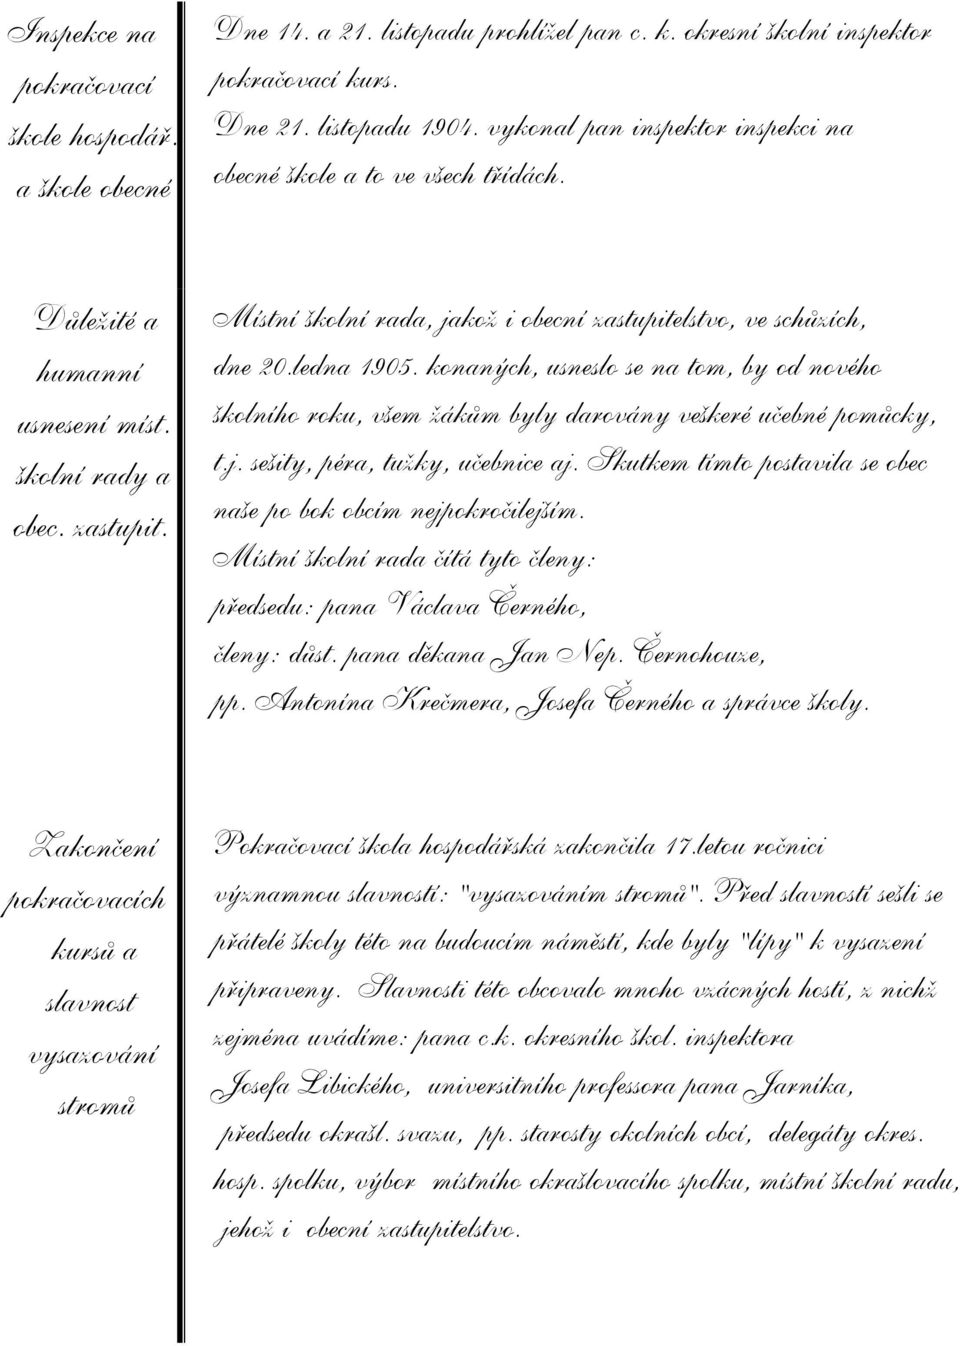 Inspekce na
pokračovací
škole hospodář.
a škole obecné
Dne 14. a 21. listopadu prohlížel pan c. k. okresní školní inspektor
pokračovací kurs.
Dne 21. listopadu 1904. vykonal pan inspektor inspekci na
obecné škole a to ve všech třídách.
Důležité a
humanní
usnesení míst.
školní rady a
obec. zastupit.
Místní školní rada, jakož i obecní zastupitelstvo, ve schůzích,
dne 20.ledna 1905. konaných, usneslo se na tom, by od nového
školního roku, všem žákům byly darovány veškeré učebné pomůcky,
t.j. sešity, péra, tužky, učebnice aj. Skutkem tímto postavila se obec
naše po bok obcím nejpokročilejším.
Místní školní rada čítá tyto členy:
předsedu: pana Václava Černého,
členy: důst. pana děkana Jan Nep. Černohouze,
pp. Antonína Krečmera, Josefa Černého a správce školy.
Zakončení
pokračovacích
kursů a
slavnost
vysazování
stromů
Pokračovací škola hospodářská zakončila 17.letou ročnici
významnou slavností: "vysazováním stromů". Před slavností sešli se
přátelé školy této na budoucím náměstí, kde byly "lípy" k vysazení
připraveny. Slavnosti této obcovalo mnoho vzácných hostí, z nichž
zejména uvádíme: pana c.k. okresního škol. inspektora
Josefa Libického, universitního professora pana Jarníka,
předsedu okrašl. svazu, pp. starosty okolních obcí, delegáty okres.
hosp. spolku, výbor místního okrašlovacího spolku, místní školní radu,
jehož i obecní zastupitelstvo.